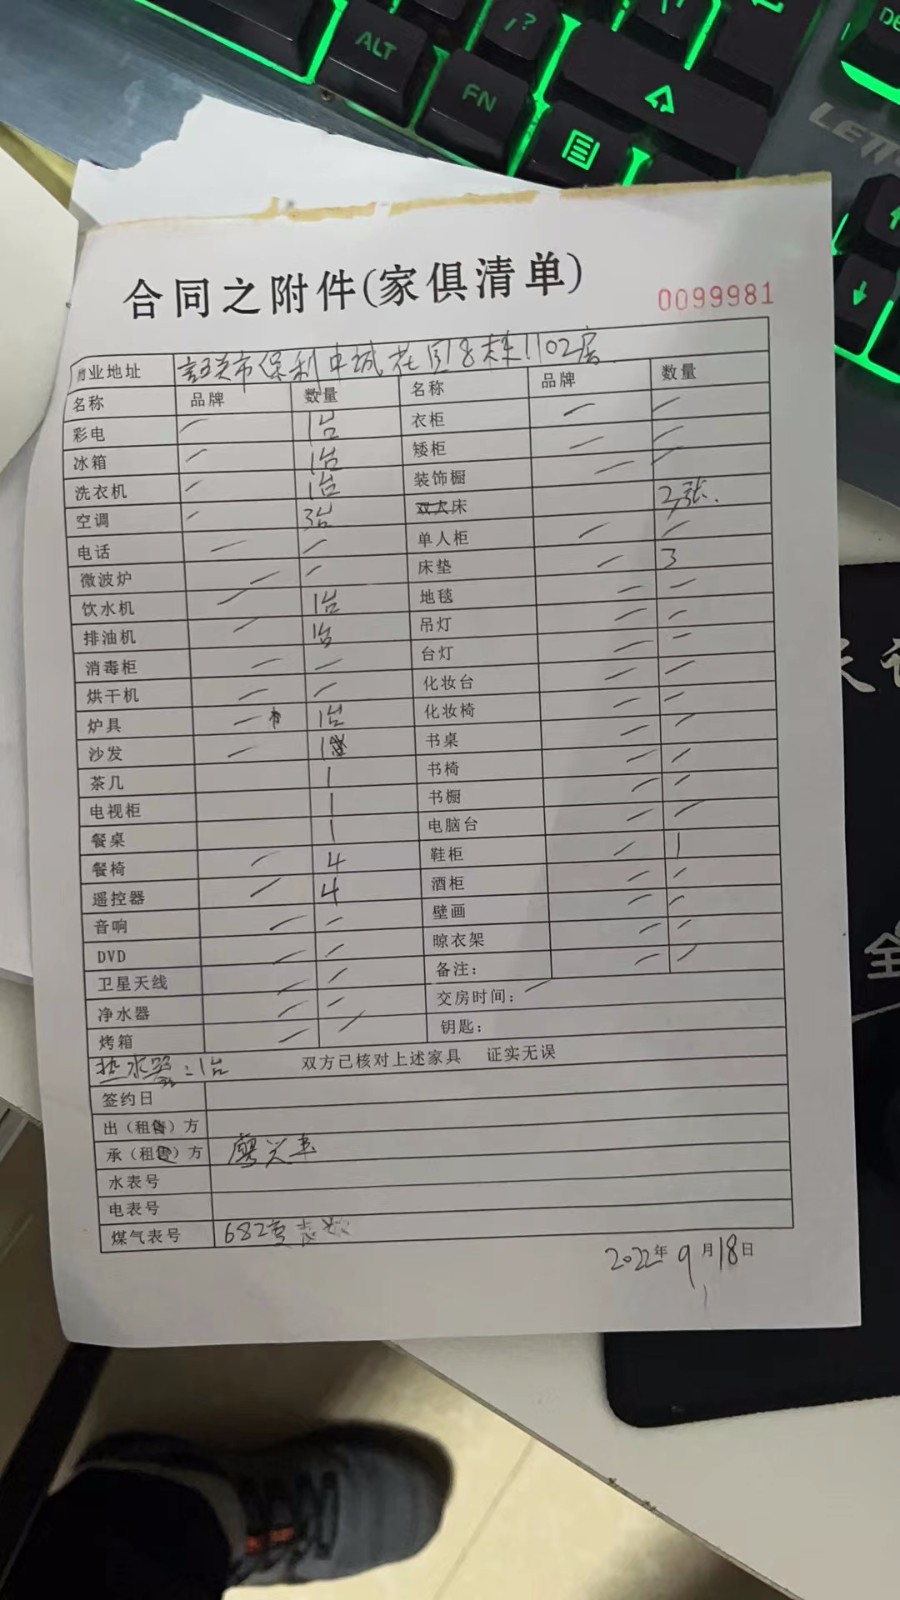 ALT
FN
合同之附件(家俱清单)
0099981
物业地址 韶关市保利中城花园8栋1102房
名称 品牌 数量 名称 品牌 数量
彩电 1台 衣柜
冰箱 1台 矮柜
洗衣机 1台 装饰橱
空调 3台 床 2张.
电话 单人柜
微波炉 床垫 3
饮水机 1台 地毯
排油机 1台 吊灯
消毒柜 台灯
烘干机 化妆台
炉具 1台 化妆椅
沙发 1 书桌
茶几 1 书椅
电视柜 1 书橱
餐桌 1 电脑台
餐椅 4 鞋柜 1
遥控器 4 酒柜
音响 壁画
DVD 晾衣架
卫星天线 备注：
净水器 交房时间：
烤箱 钥匙：
热水器：1台 双方已核对上述家具 证实无误
签约日
出（租售）方
承（租）方
水表号
电表号
煤气表号 682
2022年9月18日